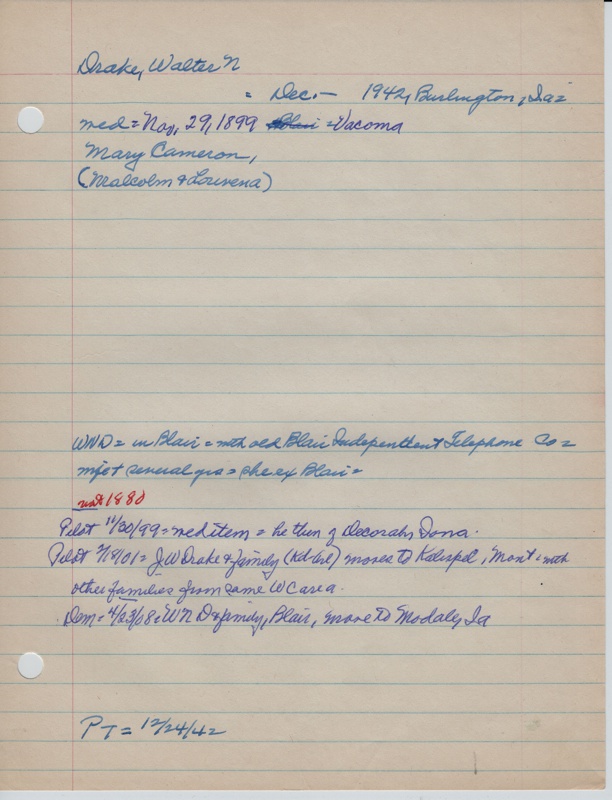 Drake, Walter N
= Dec. — 1942, Burlington, Ia =
med = Nov, 29, 1899 Blair = Vacoma
Mary Cameron,
(Malcolm & Louvena)
WND = in Blair = with old Blair Independent Telephone Co =
mgr several yrs = she ex Blair =
not 1880
Pilot 11/30/99 = med item = he then of Decorah, Iowa.
Pilot 01 = J W Drake & family moves to Kalispel, Mont. with
other families from same WC area.
Dem = 4/23/08 = W N D & family, Blair, move to Modale, Ia
PT = 12/24/42